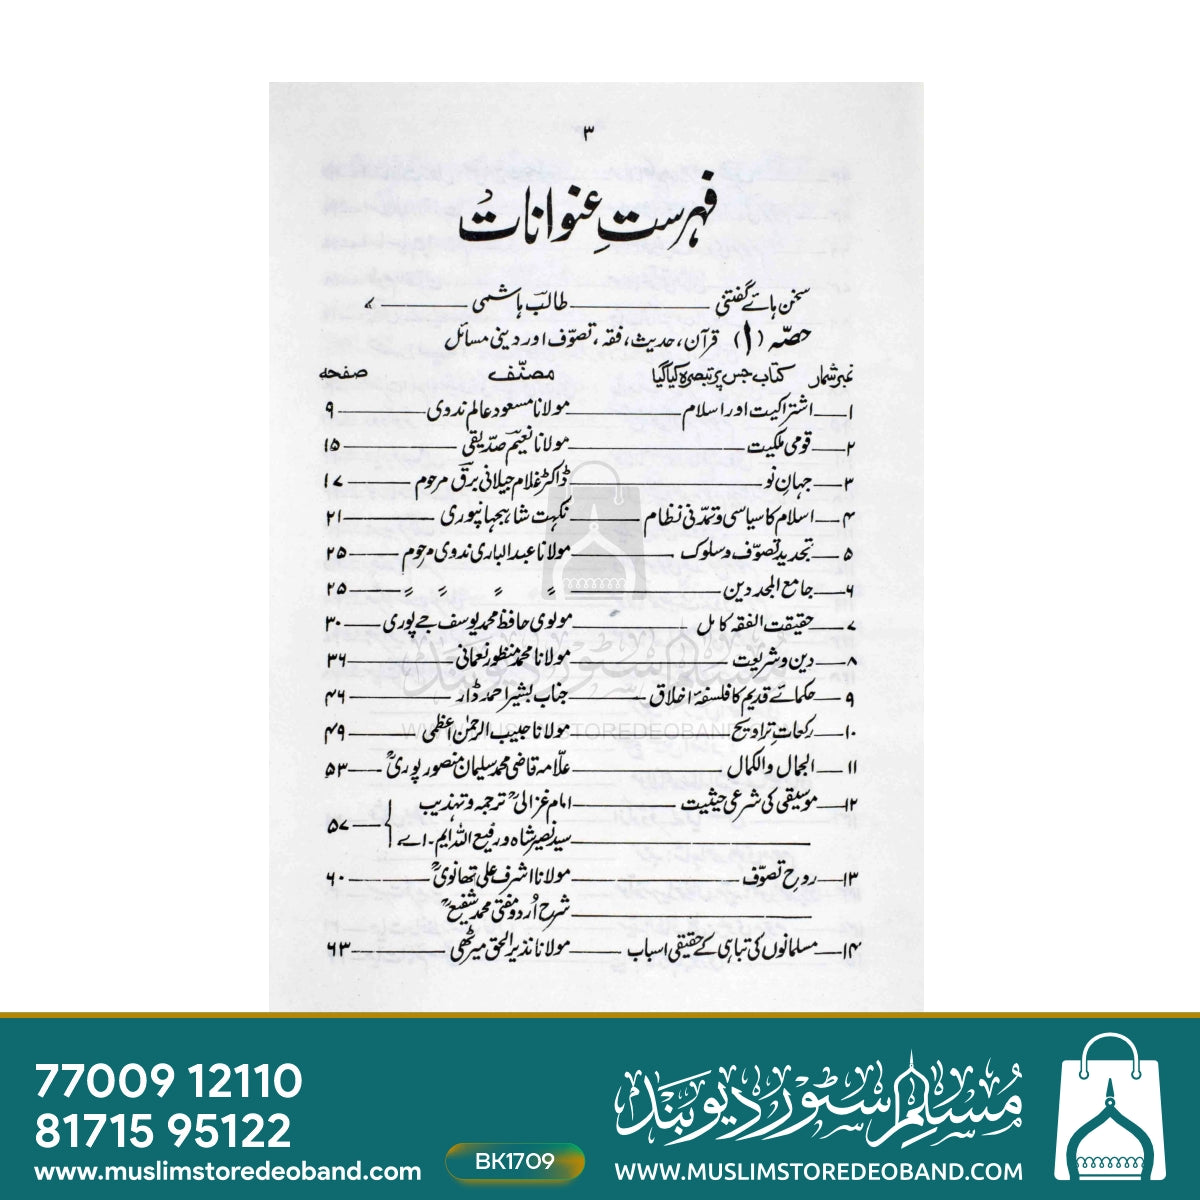 ۳
فہرستِ عنوانات
سخن ہائے گفتنی ــــ طالب ہاشمی ــــ ۷
حصّہ (۱) قرآن، حدیث، فقہ، تصوّف اور دینی مسائل
نمبر شمار کتاب جس پر تبصرہ کیا گیا مصنّف صفحہ
۱ــــ اشتراکیت اور اسلام ــــ مولانا مسعود عالم ندوی ــــ ۹
۲ــــ قومی ملکیت ــــ مولانا نعیم صدیقی ــــ ۱۵
۳ــــ جہانِ نو ــــ ڈاکٹر غلام جیلانی برق مرحوم ــــ ۱۷
۴ــــ اسلام کا سیاسی و تمدّنی نظام ــــ نکہت شاہجہانپوری ــــ ۲۱
۵ــــ تجدید تصوّف و سلوک ــــ مولانا عبد الباری ندوی مرحوم ــــ ۲۵
۶ــــ جامع المجددین ــــ 〃 〃 〃 〃 ــــ ۲۵
۷ــــ حقیقت الفقہ کامل ــــ مولوی حافظ محمد یوسف جے پوری ــــ ۳۰
۸ــــ دین و شریعت ــــ مولانا محمد منظور نعمانی ــــ ۳۶
۹ــــ حکمائے قدیم کا فلسفۂ اخلاق ــــ جناب بشیر احمد ڈار ــــ ۴۶
۱۰ــــ رکعاتِ تراویح ــــ مولانا حبیب الرحمٰن اعظمی ــــ ۴۹
۱۱ــــ الجمال والکمال ــــ علّامہ قاضی محمد سلیمان منصور پوریؒ ــــ ۵۳
۱۲ــــ موسیقی کی شرعی حیثیت ــــ امام غزالیؒ ترجمہ و تہذیب
سید نصیر شاہ و رفیع اللہ ایم۔اے ــــ ۵۷
۱۳ــــ روحِ تصوّف ــــ مولانا اشرف علی تھانویؒ ــــ ۶۰
شرح اُردو مفتی محمد شفیعؒ
۱۴ــــ مسلمانوں کی تباہی کے حقیقی اسباب ــــ مولانا نذیر الحق میرٹھی ــــ ۶۳
مسلم سٹور دیوبند
WWW.MUSLIMSTOREDEOBAND.COM
77009 12110
81715 95122
www.muslimstoredeoband.com
BK1709
مُسلم سٹور دیوبند
WWW.MUSLIMSTOREDEOBAND.COM